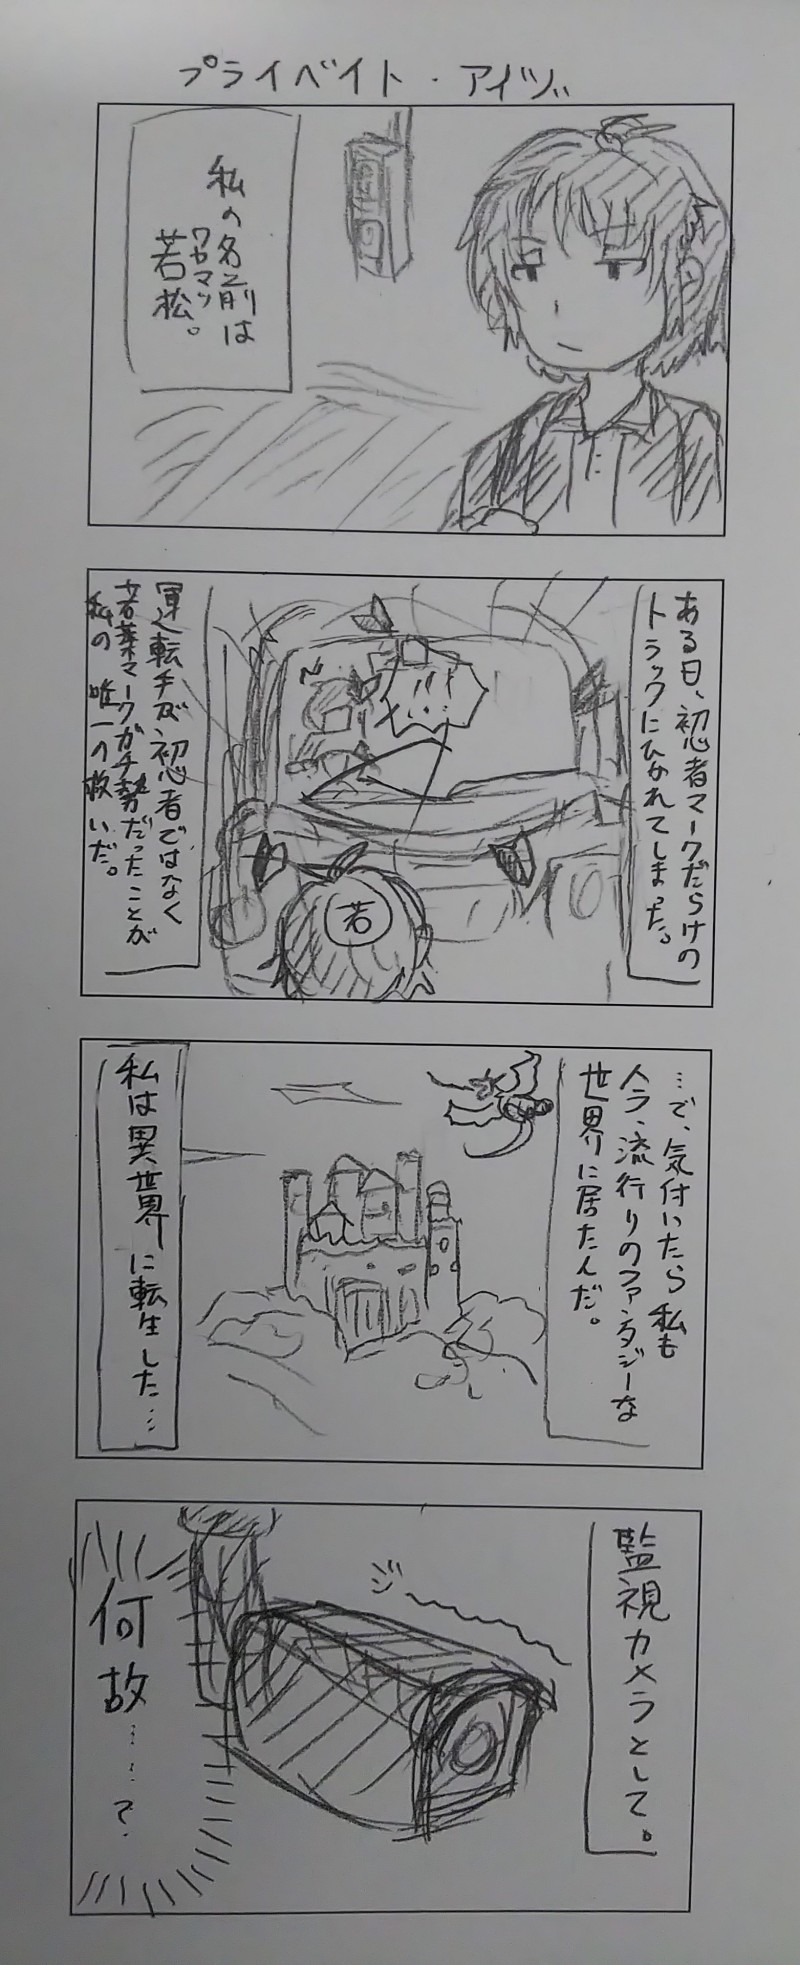 プライベイト・アイヅ
私の名前は
ワカマツ
若松。
ある日、初心者マークだらけの
トラックにひかれてしまった。
!!!
若
運転手が初心者ではなく
若葉マークガチ勢だったことが
私の唯一の救いだ。
…で、気付いたら私も
今ラ、流行りのファンタジーな
世界に居たんだ。
私は異世界に転生した…
監視カメラとして。
ジ〜
何故……?